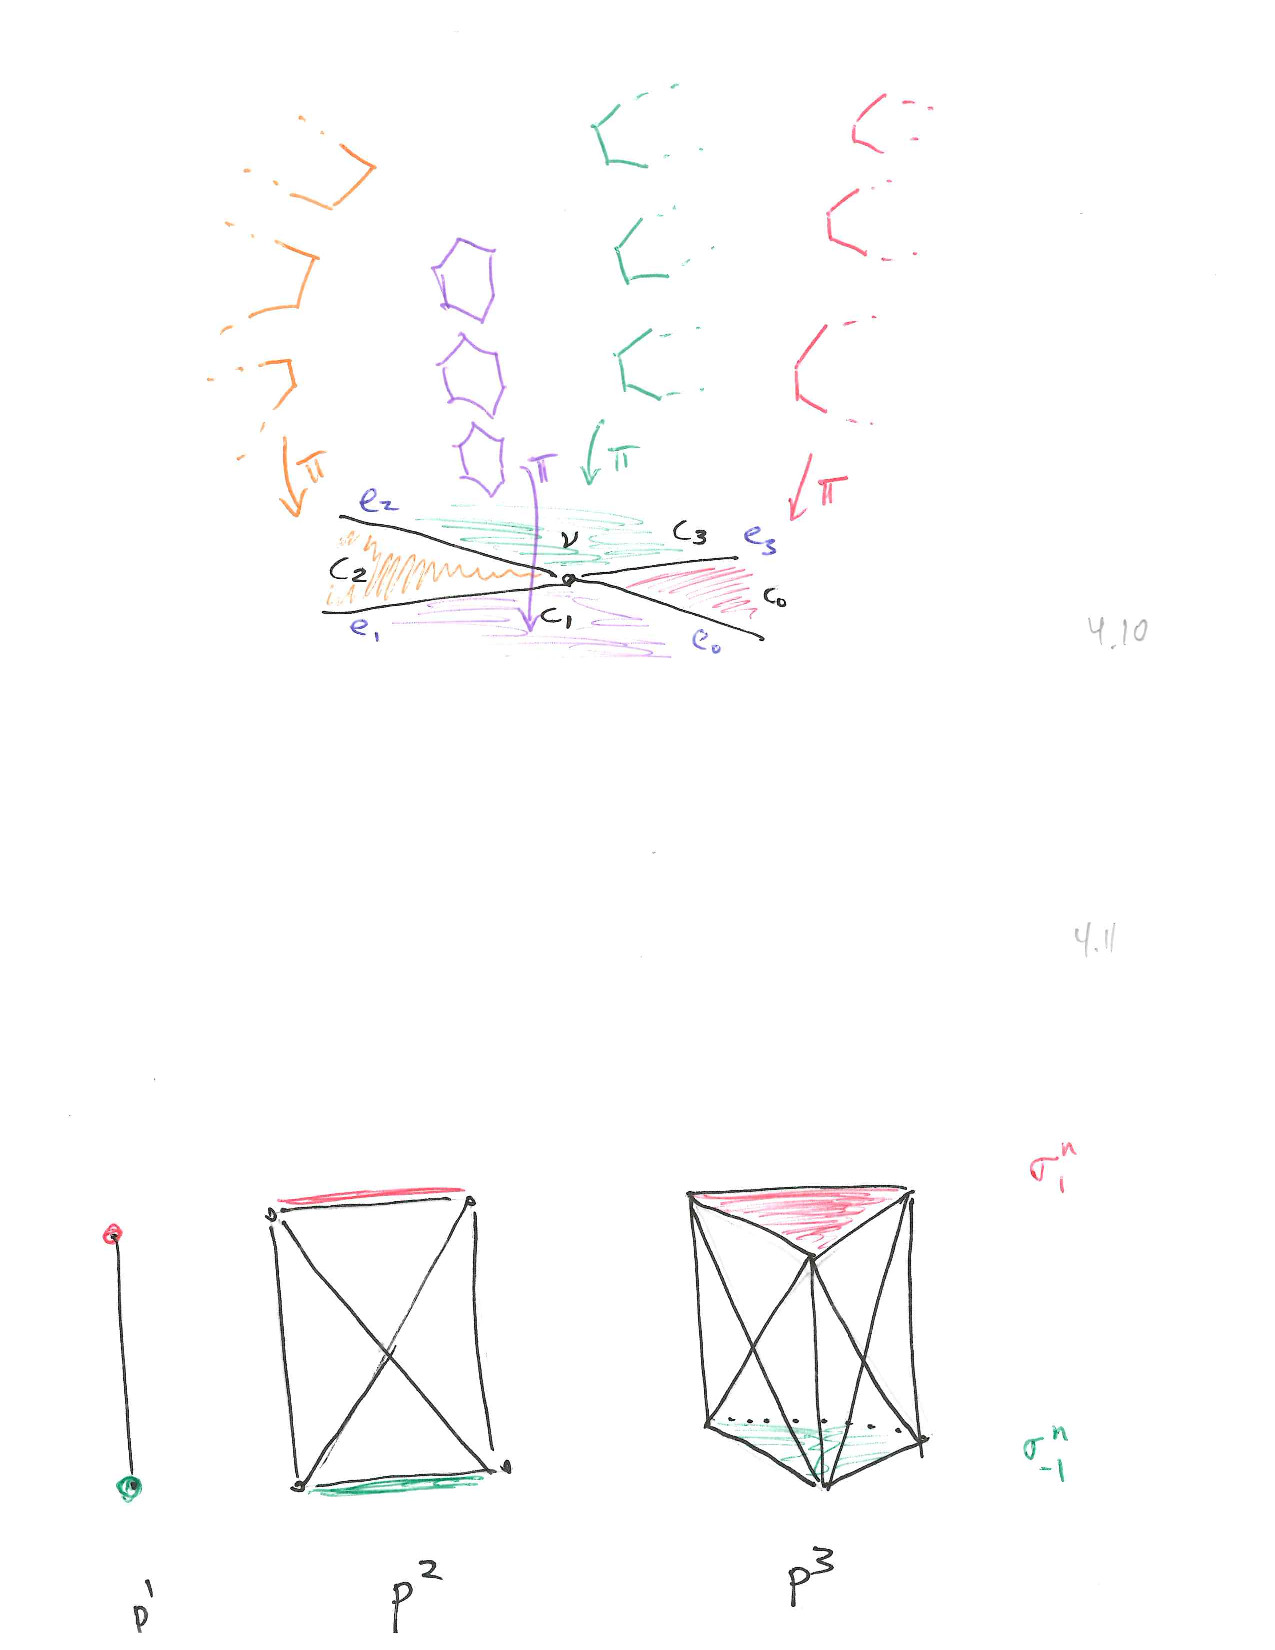 π π π π
e₂ ν C₃ e₃
C₂ C₀
e₁ C₁ e₀
4.10
4.11
σ₁ⁿ
σ₋₁ⁿ
p¹ p² p³